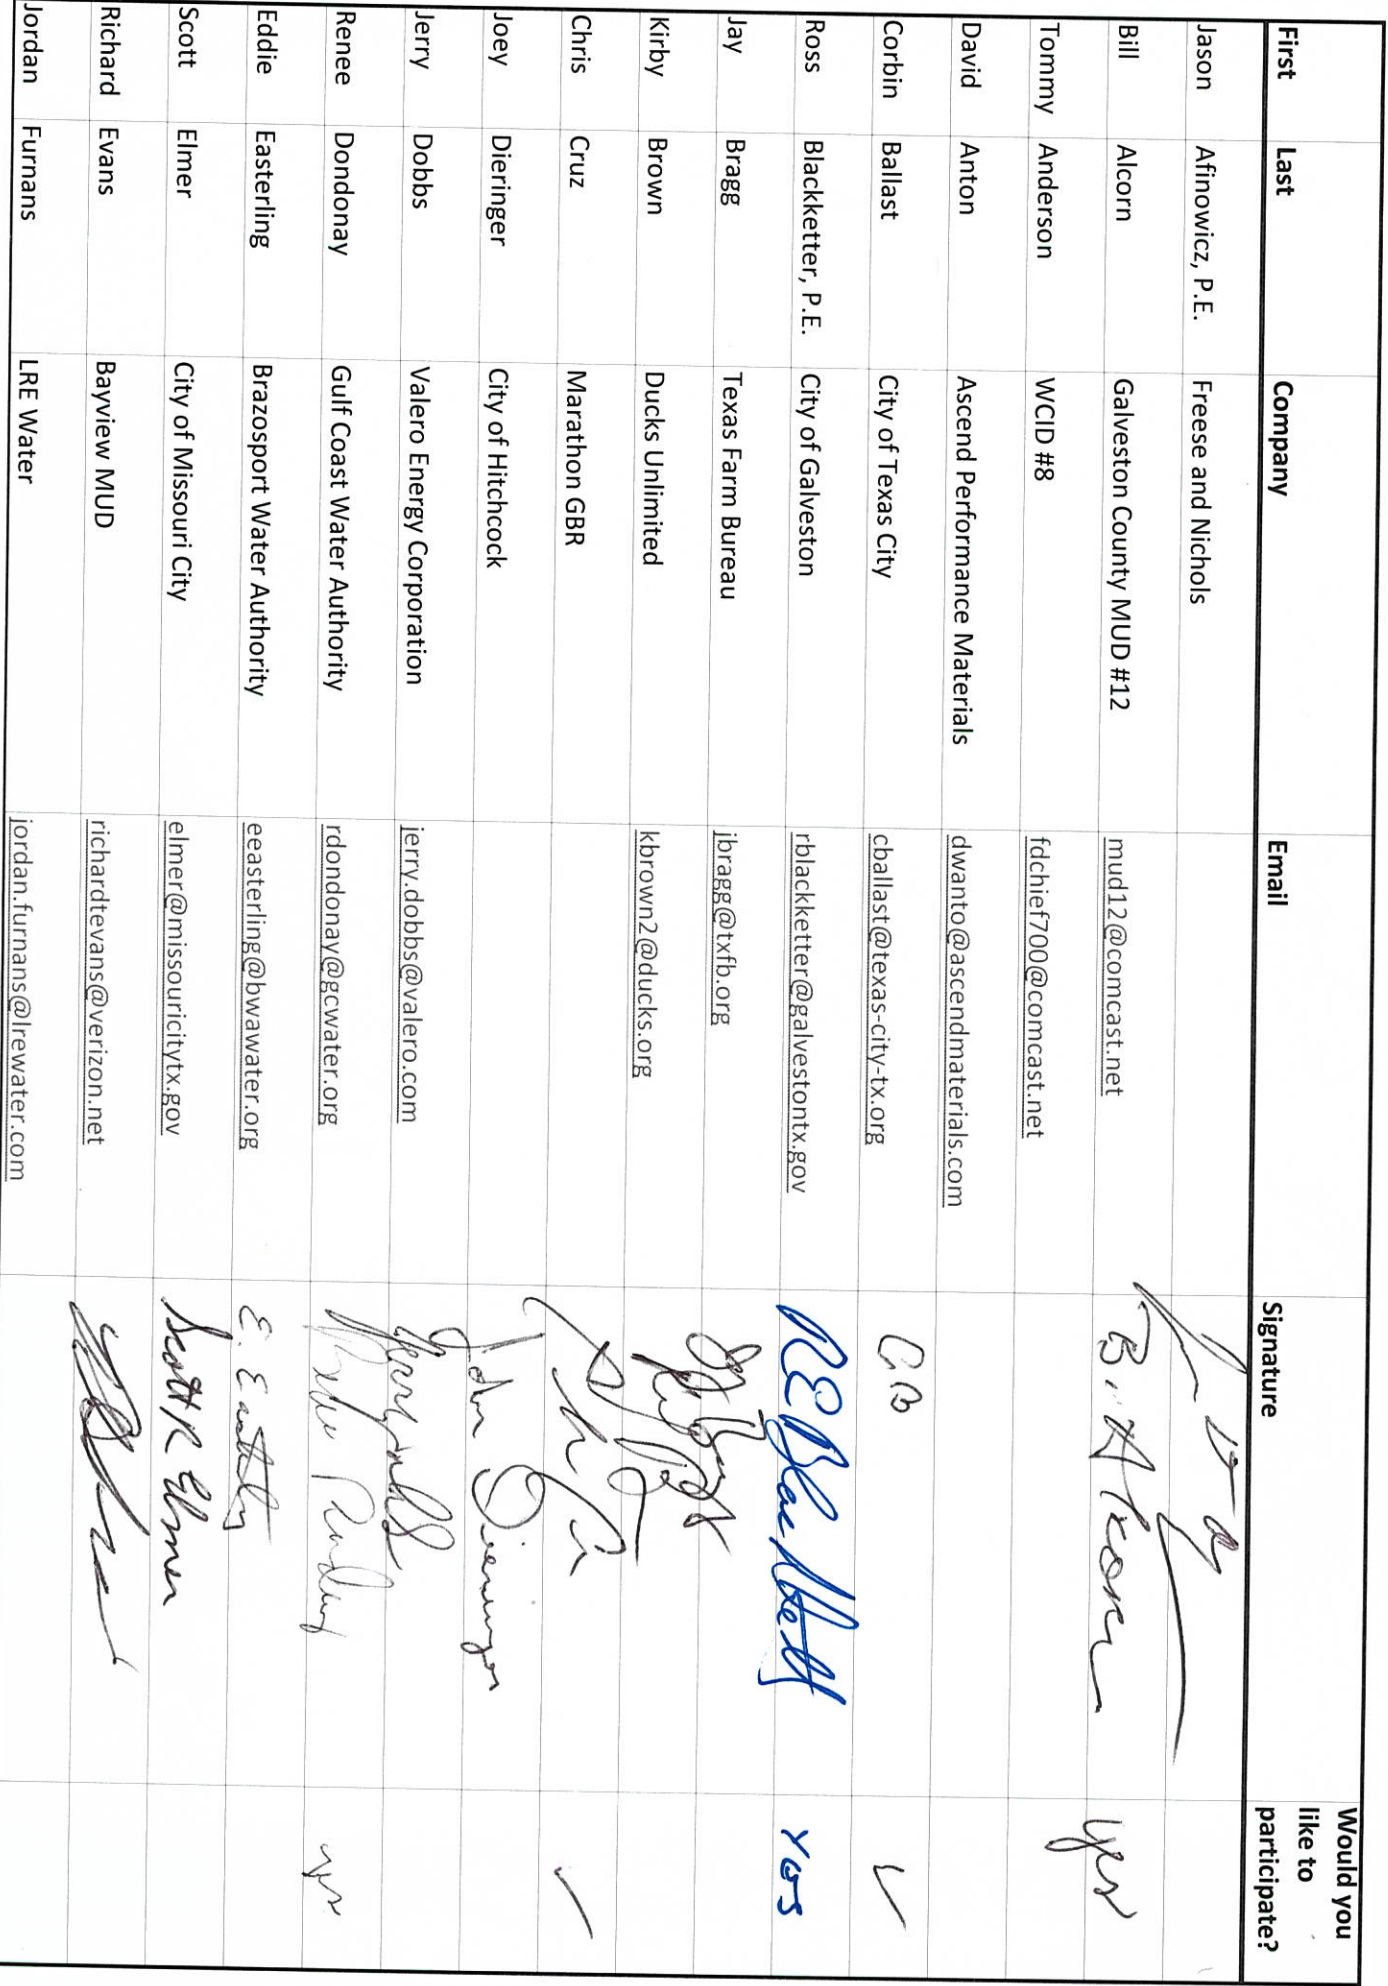 First Last Company Email Signature Would you like to participate?
Jason Afinowicz, P.E. Freese and Nichols
Bill Alcorn Galveston County MUD #12 mud12@comcast.net B. Alcorn yes
Tommy Anderson WCID #8 fdchief700@comcast.net
David Anton Ascend Performance Materials dwanto@ascendmaterials.com
Corbin Ballast City of Texas City cballast@texas-city-tx.org CB ✓
Ross Blackketter, P.E. City of Galveston rblackketter@galvestontx.gov REBlackkett Yes
Jay Bragg Texas Farm Bureau jbragg@txfb.org
Kirby Brown Ducks Unlimited kbrown2@ducks.org
Chris Cruz Marathon GBR ✓
Joey Dieringer City of Hitchcock John Dieringer
Jerry Dobbs Valero Energy Corporation jerry.dobbs@valero.com
Renee Dondonay Gulf Coast Water Authority rdondonay@gcwater.org yes
Eddie Easterling Brazosport Water Authority eeasterling@bwawater.org E. Eastly
Scott Elmer City of Missouri City elmer@missouricitytx.gov Scott R Elmer
Richard Evans Bayview MUD richardtevans@verizon.net
Jordan Furnans LRE Water jordan.furnans@lrewater.com